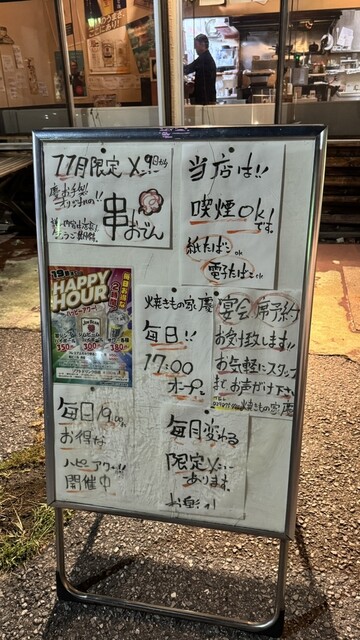 11月限定メ 9日から
串おでん
当店は!!
喫煙ok!
です。
紙たばこok
電子たばこok
19
HAPPY
HOUR
ハッピーアワー
毎日お得な
150 300 380
焼きもの家 慶
毎日!!
17:00
オープン
宴会 席予約
お受け致します!!
お気軽にスタッフ
まで お声がけ下さい
焼きもの家 慶
毎日19:00
お得な
ハピーアワー!!
開催中
毎月変わる
限定メニュー
あります。
お楽しみ!